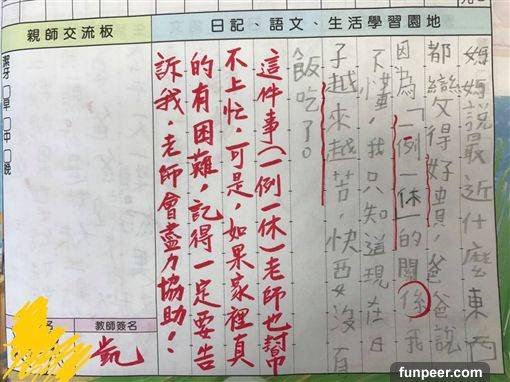 親師交流板
日記、語文、生活學習園地
媽媽說最近什麼東西
都變得好貴，爸爸說
因為「一例一休」的關係我
不懂，我只知道現在日
子越來越苦，快要沒有
飯吃了。
這件事(一例一休)老師也幫
不上忙，可是，如果家裡真
的有困難，記得一定要告
訴我，老師會盡力協助！
潔牙□早□中□晚
名
教師簽名
凱
funpeer.com